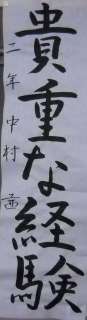 貴重な経験
二年中村茜